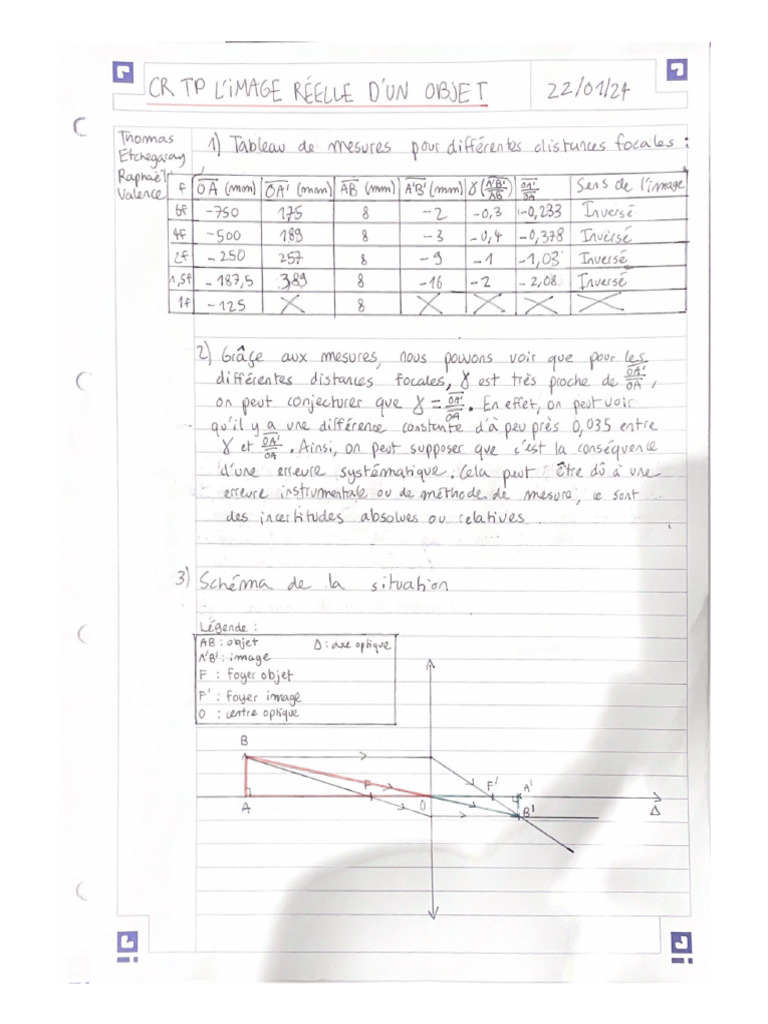 CR TP L'IMAGE RÉELLE D'UN OBJET 22/01/24
Thomas
Etchegaray
Raphaël
Valence
1) Tableau de mesures pour différentes distances focales :
f OA (mm) OA' (mm) AB (mm) A'B' (mm) γ(A'B'/AB) OA'/OA Sens de l'image
6f -750 175 8 -2 -0,3 -0,233 Inversé
4f -500 189 8 -3 -0,4 -0,378 Inversé
2f -250 257 8 -9 -1 -1,03 Inversé
1,5f -187,5 389 8 -16 -2 -2,08 Inversé
1f -125 X 8 X X X X
2) Grâge aux mesures, nous pouvons voir que pour les
différentes distances focales, γ est très proche de OA'/OA,
on peut conjecturer que γ = OA'/OA. En effet, on peut voir
qu'il y a une différence constante d'à peu près 0,035 entre
γ et OA'/OA. Ainsi, on peut supposer que c'est la conséquence
d'une erreure systématique. Cela peut être dû à une
erreure instrumentale ou de méthode de mesure, ce sont
des incertitudes absolues ou relatives.
3) Schéma de la situation
Légende :
AB : objet Δ : axe optique
A'B' : image
F : foyer objet
F' : foyer image
O : centre optique
B
F F' A'
A O B' Δ